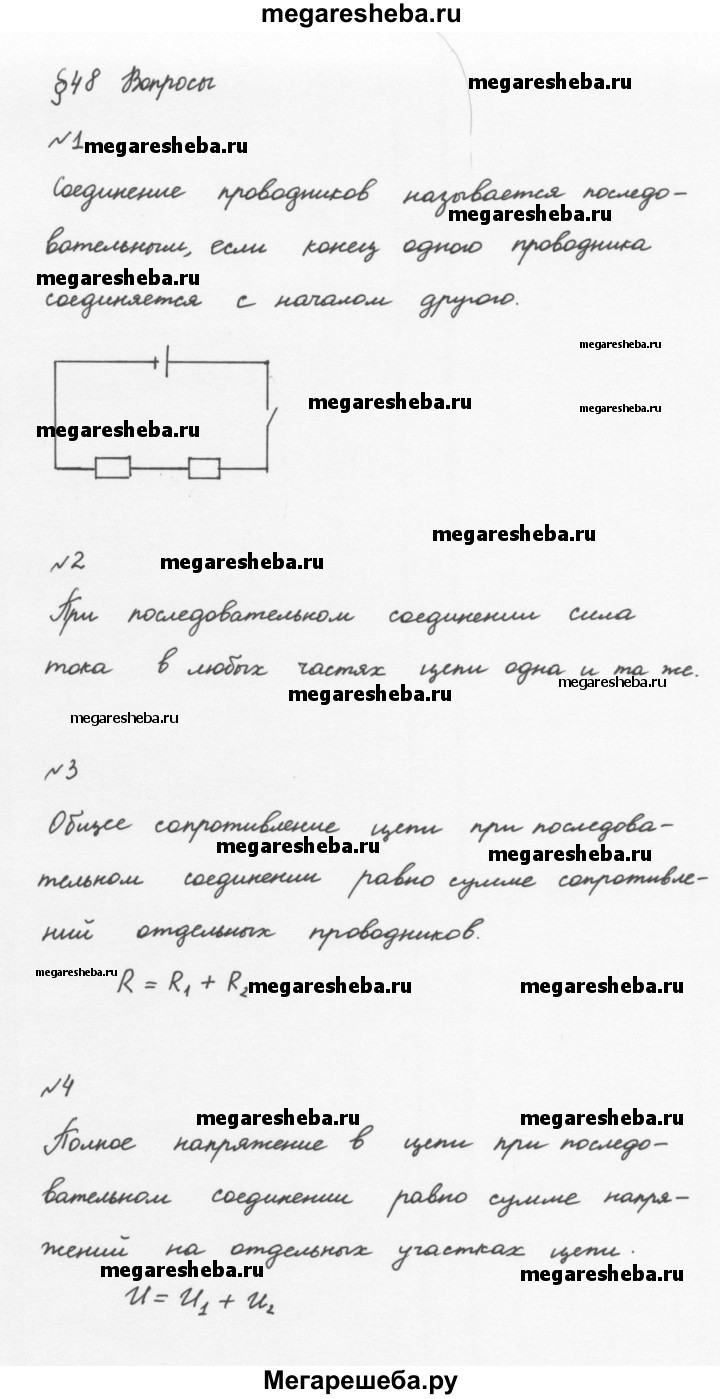 megaresheba.ru
§48 Вопросы
megaresheba.ru
№1 megaresheba.ru
Соединение проводников называется последо-
megaresheba.ru
вательным, если конец одного проводника
megaresheba.ru
соединяется с началом другого.
megaresheba.ru
megaresheba.ru
megaresheba.ru
megaresheba.ru
+
megaresheba.ru
№2 megaresheba.ru
При последовательном соединении сила
тока в любых частях цепи одна и та же.
megaresheba.ru
megaresheba.ru
megaresheba.ru
№3
Общее сопротивление цепи при последова-
megaresheba.ru
megaresheba.ru
тельном соединении равно сумме сопротивле-
ний отдельных проводников.
megaresheba.ru
R = R₁ + R₂ megaresheba.ru
megaresheba.ru
№4
megaresheba.ru
megaresheba.ru
Полное напряжение в цепи при последо-
вательном соединении равно сумме напря-
жений на отдельных участках цепи.
megaresheba.ru
megaresheba.ru
U = U₁ + U₂
Мегарешеба.ру